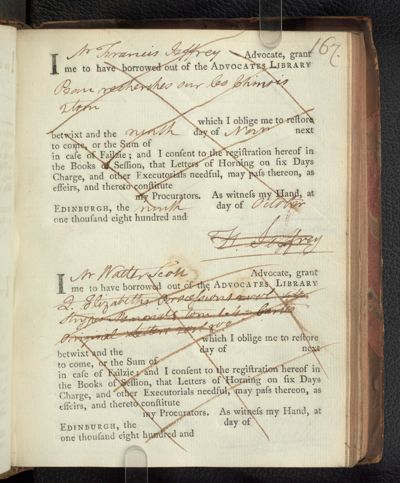 167.
I Mr Francis Jeffrey Advocate, grant
me to have borrowed out of the ADVOCATES LIBRARY
Pau recherches sur les Chinois
2 tom
which I oblige me to reſtore
betwixt and the ninth day of Novr next
to come, or the Sum of
in caſe of Failzie; and I conſent to the regiſtration hereof in
the Books of Seſſion, that Letters of Horning on ſix Days
Charge, and other Executorials needful, may paſs thereon, as
effeirs, and thereto conſtitute
my Procurators. As witneſs my Hand, at
EDINBURGH, the ninth day of October
one thouſand eight hundred and
F. Jeffrey
I Mr Walter Scott Advocate, grant
me to have borrowed out of the ADVOCATES LIBRARY
Q. Elizabeths Processions
Strypes Memorials
original Letters
which I oblige me to reſtore
betwixt and the day of next
to come, or the Sum of
in caſe of Failzie; and I conſent to the regiſtration hereof in
the Books of Seſſion, that Letters of Horning on ſix Days
Charge, and other Executorials needful, may paſs thereon, as
effeirs, and thereto conſtitute
my Procurators. As witneſs my Hand, at
EDINBURGH, the day of
one thouſand eight hundred and